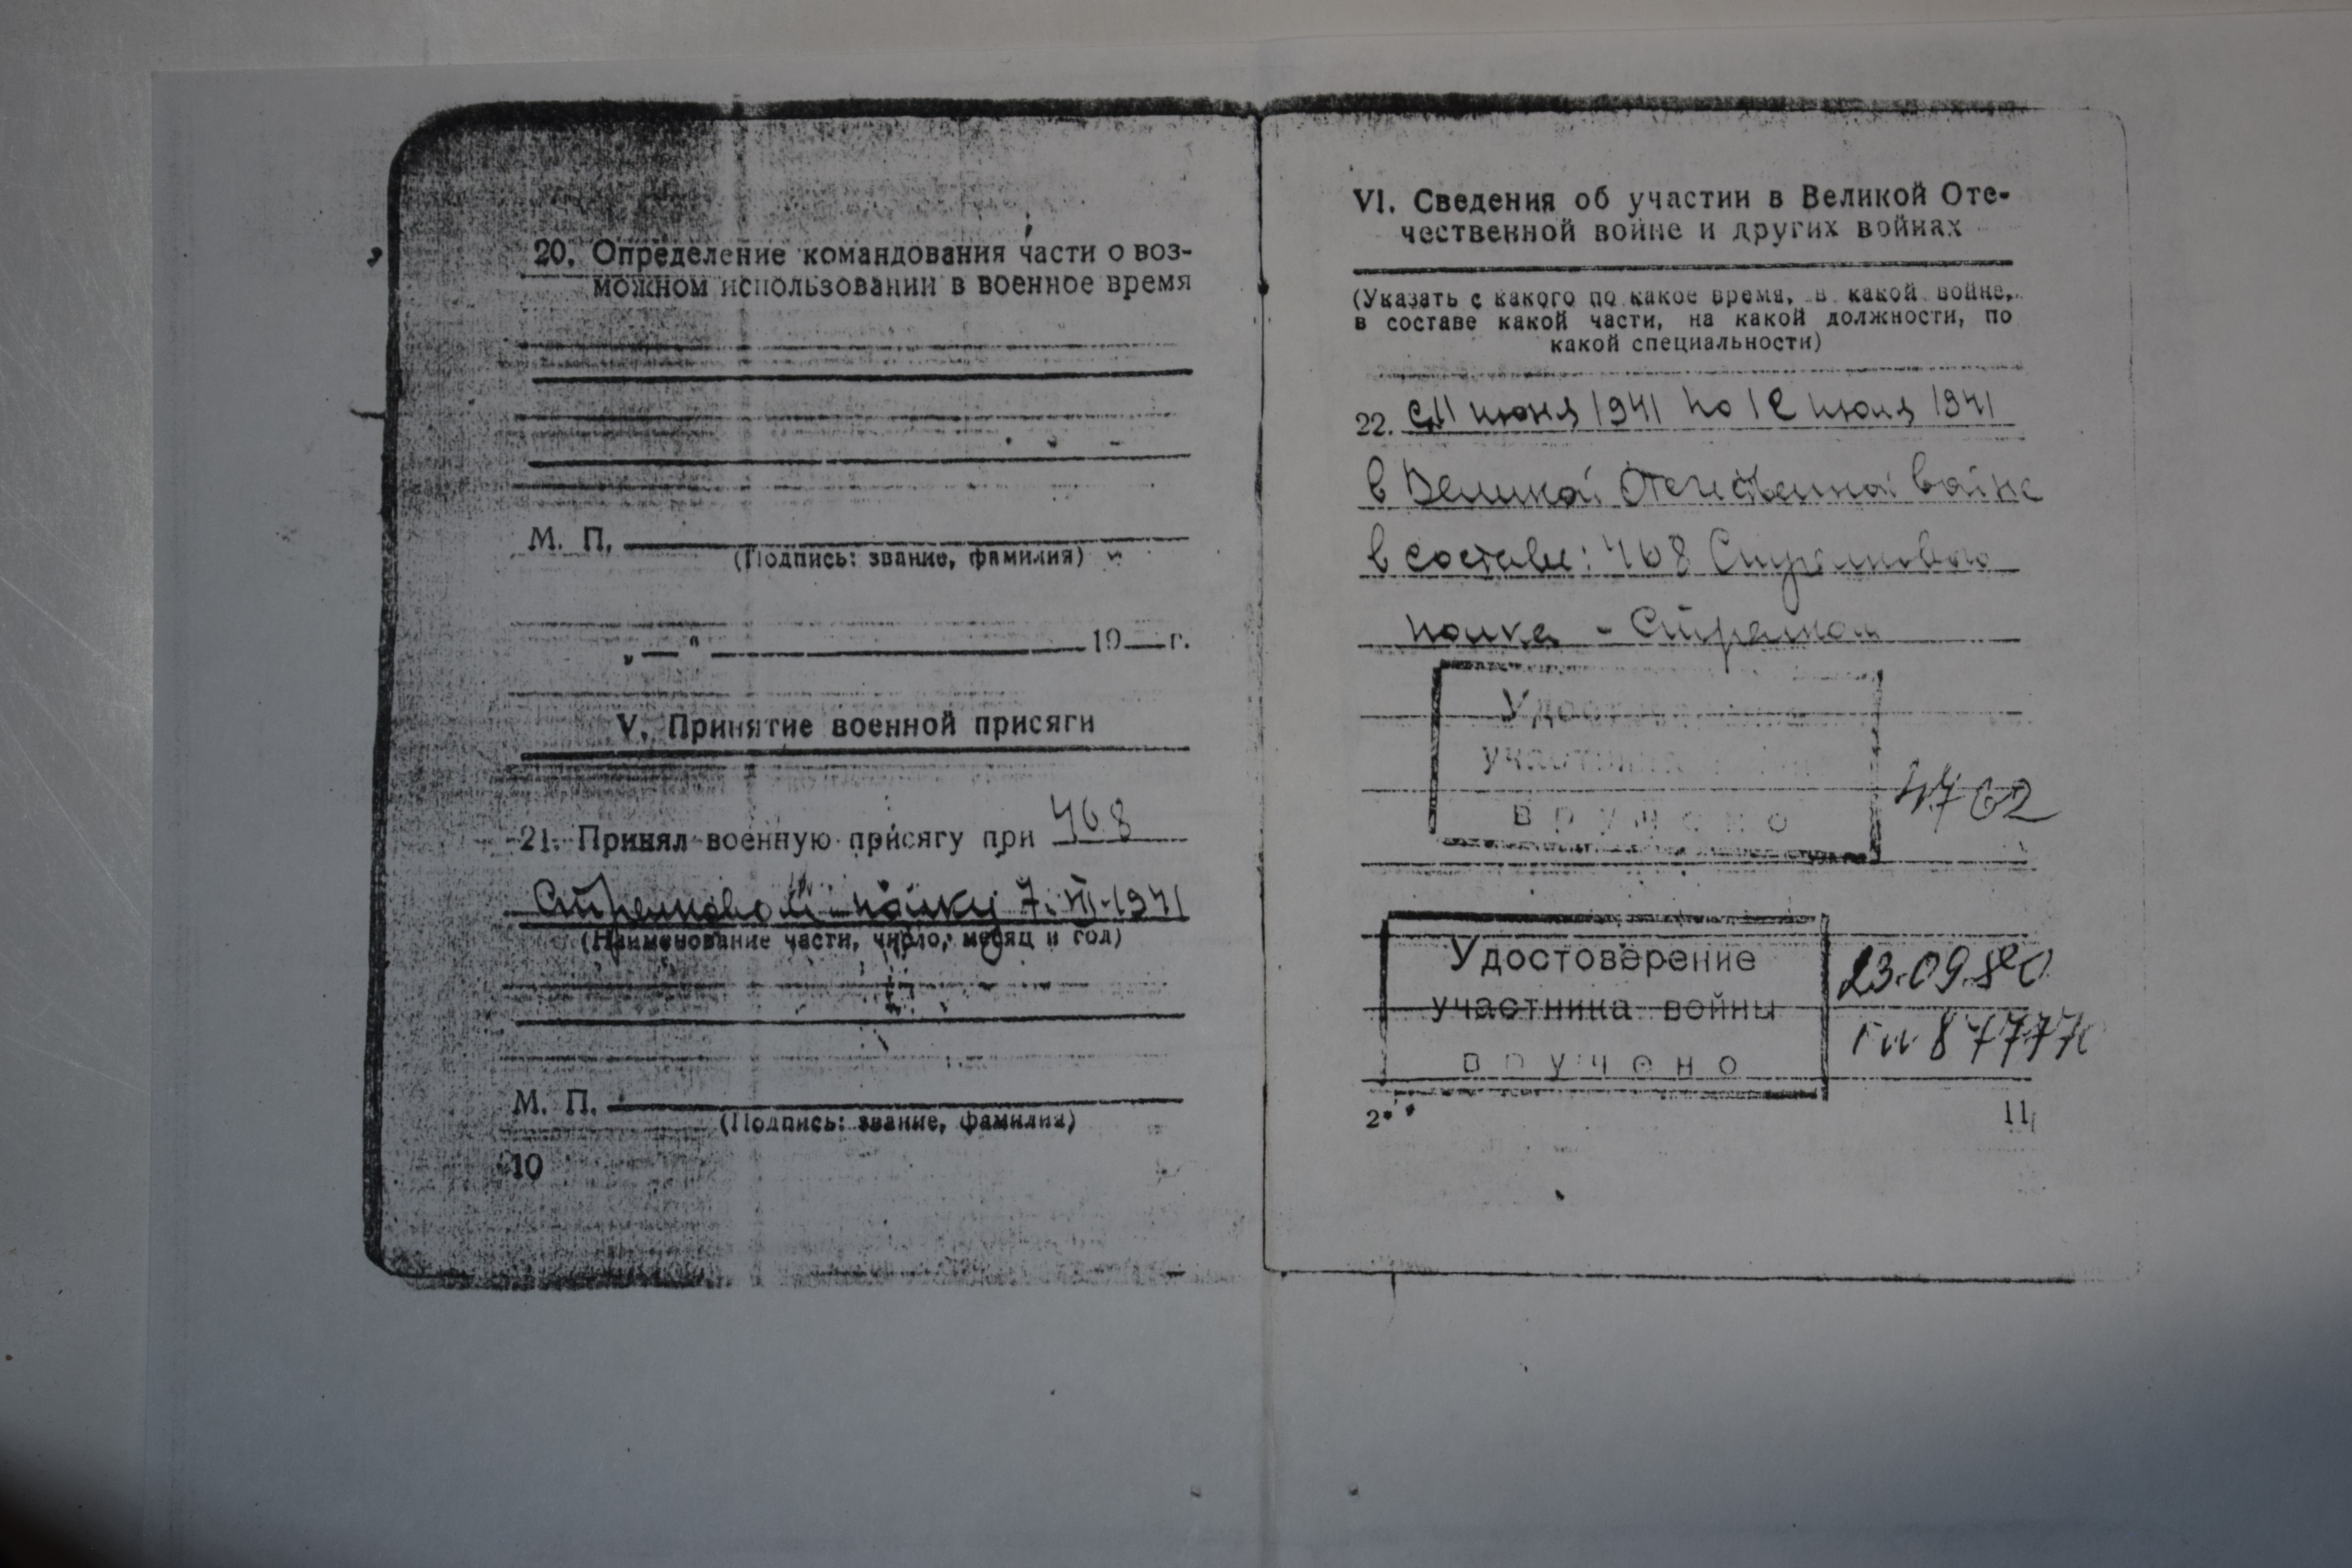 20. Определение командования части о воз-
можном использовании в военное время
М. П.
(Подпись: звание, фамилия)
„ — “ 19 — г.
V. Принятие военной присяги
21. Принял военную присягу при 468
Стрелковом полку 7. VII-1941
(Наименование части, число, месяц и год)
М. П.
(Подпись: звание, фамилия)
10
VI. Сведения об участии в Великой Оте-
чественной войне и других войнах
(Указать с какого по какое время, в какой войне,
в составе какой части, на какой должности, по
какой специальности)
22. июня 1941 по июля 1941
в Великой Отечественной войне
в составе: 468 Стрелкового
полка -
Удостоверение
участника
вручено
4762
Удостоверение
участника войны
вручено
23.09.80
2*
11